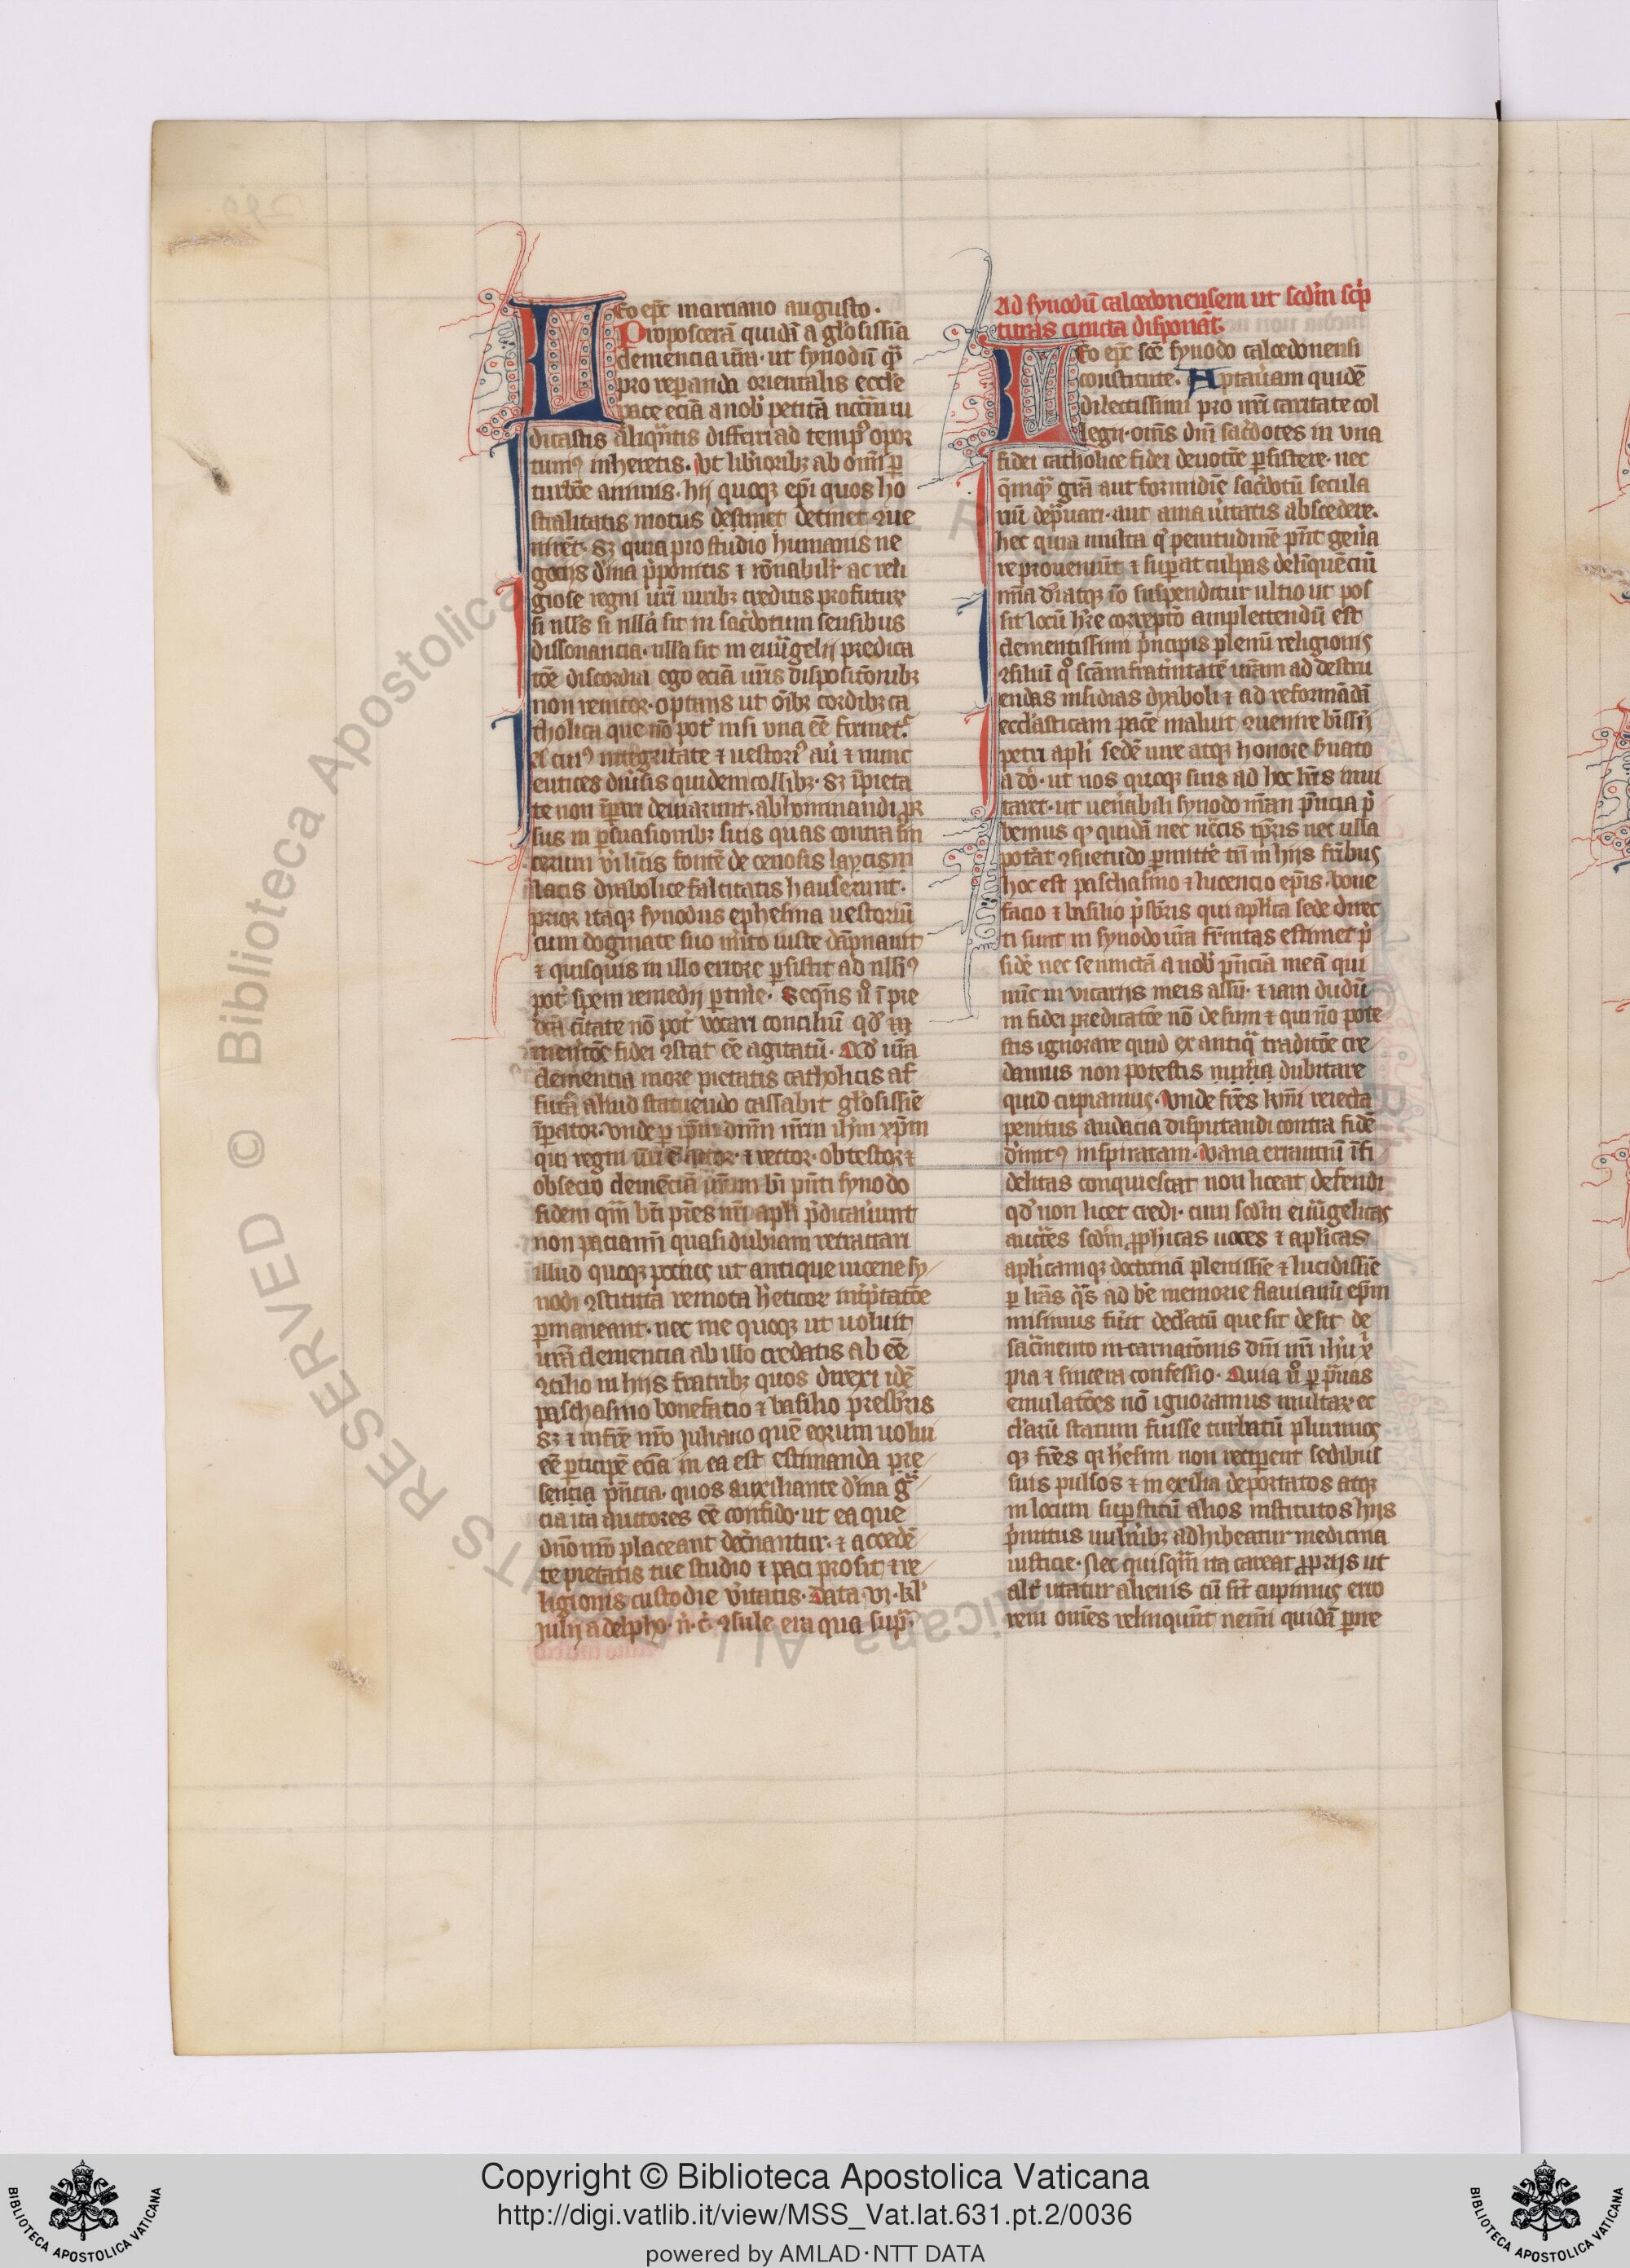 Leo ep̄c marciano augusto.
Proposcerā quidā a gl̓osissīa
clemencia vr̄a. ut synodū q̄
pro reꝑanda orientalis eccl̓e
pace eciā a nob̓ petitā nccr̄iū iu
dicastis aliqn̄tis differri ad temp⁹ opor
tuni⁹ inheretis. Ut lib̓ioribꝫ ab om̄i ꝑ
turbōe animis. hij quoqꝫ ep̄i quos ho
stialitatis motus destinet detinet ꝯue
nirēt. sꝫ quia pro studio humanis ne
gocijs d̓ina p̓ponitis ⁊ rōnabilit̓ ac reli
giose regni vr̄i uiribꝫ creditis profuturꝫ
si nll̓s si nll̓a sit in sac̓dotum sensibus
dissonancia. nll̓a sit in euu̓gelij predica
cōe discordia ego eciā vr̄is dispositōnibꝫ
non renitor. optans ut oīb̓ꝫ cordibꝫ ca
tholica que nō pot̓ nisi vna eē firmet᷑.
A cui⁹ integritate ⁊ nestori⁹ aū ⁊ nunc
eutices diuīsis quidem collibꝫ. sꝫ īpieta
te non īpari deuiarunt. abhominandi p̄r
sus in ꝑsuasionibꝫ suis quas contra sin
cerum v̓i lum̄s fontē de cenosis laycism
llacis dyabolice falcitatis hauserunt.
prior itaqꝫ synodus ephesina nestoriū
cum dogmate suo m̓ito iuste dāpnauit
⁊ quisquis in illo errore ꝑsistit ad nlli⁹
pot̓ spem remedij ꝑtin̓e. Seqn̄s ū ī pre
dc̄ā cītate nō pot̓ vocari conciliū qd̓ in
mentōe fidei ꝯstat eē agitatū. Qd̓ vr̄a
clemencia more pietatis catholicis af
futr̄a aliud statuendo cassabit gl̓osissīe
īꝑator. vnde ꝑ ip̄m dn̄m nr̄m ih̄m xp̄m
qui regni vr̄i ē auctor. ⁊ rector. obtestor ⁊
obsecro clemēciā vr̄am ut in pn̄ti synodo
fidem qm̄ bt̄i pr̄es nr̄i apl̓i p̓dicauer̄unt
non paciam̄ quasi dubiam retractari
illud quoqꝫ pocius ut antique nicene sy
nodi ꝯstituta remota h̓eticoꝝ int̓pretatōe
ꝑmaneant. nec me quoqꝫ ut uoluit
vr̄a clemencia ab illo credatis ab eē
ꝯcilio in hijs fratribꝫ quos direxi idē
paschasino bonefacio ⁊ basilio presbr̄is
sꝫ ⁊ in fr̄e nr̄o juliano quē eorum uolui
eē ꝑticipē eciā in ea est estimanda pre
sencia pn̄cia. quos auxiliante d̓ina gr̄a
cia ita auctores eē confido. ut ea que
dn̄o nr̄o placeant dec̓nantur. ⁊ accedē
te pietatis tue studio ⁊ paci prosit ⁊ re
ligionis custodie v̓itatis. Data vi. kl̓
julij adelpho. v̓. c̓. ꝯsule era qua supr̄.
Ad synodū calcedonensem ut scd̓m sc̓p
turas cuncta disponat.
Leo ep̄c sc̄e synodo calcedonensi
constitute. Aptau̓am quidē
dilectissimi pro nr̄i caritate col
legij. om̄s dn̄i sac̓dotes in vna
fidei catholice fidei deuotōe ꝑsistere. nec
qm̄qꝫ gr̄a aut formidīe sac̓dotū secula
riū dep̓uari. aut a via u̓itatis abscedere.
hec quia multa q̄ penitudinē pn̄t gen̓a
re proueniūt ⁊ suꝑat culpas deliquēciū
mīa d̓i atqꝫ iō suspenditur ultio ut pos
sit locū hr̄e correptō amplectendū est
clementissimi p̓ncipis plenū religionis
ꝯsiliū q̄ sc̄am frat̓nitatē vr̄am ad destru
endas insidias dyaboli ⁊ ad reformādā
eccl̓asticam pacē maluit ꝯuenire b̄issi̓
petri apl̓i sedē iure atqꝫ honore s̓uato
a dō. ut nos quoqꝫ suis ad hoc lr̄is inui
taret. ut uen̓abili synodo nr̄am pn̄cia p̓
bemus q̄ quidā nec nc̄cis tp̄ris nec ulla
pot̓at ꝯsuetudo ꝑmitte tn̄ in hijs fr̄ibus
hoc est paschasino ⁊ lucencio ep̄is. bone
facio ⁊ basilio p̓sbr̄is qui apl̓ica sede direc
ti sunt in synodo vr̄a fr̄nitas estimet p̓
sidē nec seiunctā a nob̓ pn̄ciā meā qui
nūc in vicarijs meis assū. ⁊ iam dudū
in fidei predicatōe nō desum ⁊ qui nō pote
stis ignorare quid ex antiqr̄ traditōe cre
damus non potestis dubitare
quid cupiamus. Unde fr̄es kr̄mi reiecta
penitus audacia disputandi contra fidē
d̓init⁹ inspiratam. Vana errantiū īfi
delitas conquiescat non liceat defendi
qd̓ non licet credi. cum scd̓m euu̓gelicas
auctt̄es scd̓m ꝓph̓icas uoces ⁊ apl̓icas
apl̓icamqꝫ doctrinā plenissīe ⁊ lucidissīe
ꝑ lr̄as qr̄s ad bē memorie flauianū ep̄m
misimus fu̓it decl̓atū que sit de sit de
sacr̄mento incarnatōnis dn̄i nr̄i ih̄u x̄
pia ⁊ sincera confessio. Quia ū ꝑ pr̄uas
emulatōes nō ignoramus multaꝝ ec
cl̓arū statum fuisse turbatū plurimos
qꝫ fr̄es q̓ h̓esim non reciꝑent sedibus
suis pulsos ⁊ in exilia deportatos atqꝫ
in locum suꝑstitū alios institutos hijs
p̓mitus uuln̓ibꝫ adhibeatur medicina
iusticie. Nec quisqm̄ ita careat ꝓprijs ut
alt̓ utatur alienis cū si̓t cupimus erro
rem om̄es relinquūt nemi̓ quidā ꝑire
Copyright © Biblioteca Apostolica Vaticana
http://digi.vatlib.it/view/MSS_Vat.lat.631.pt.2/0036
powered by AMLAD·NTT DATA